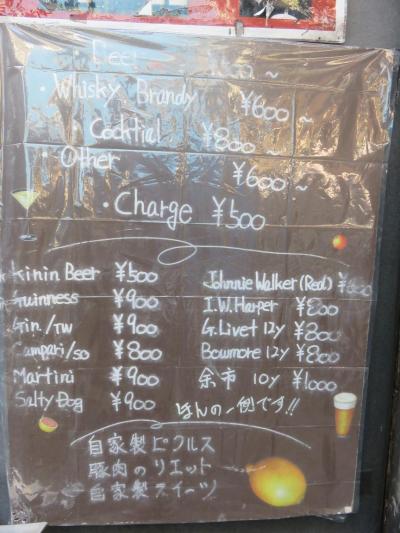 · Beer
· Whisky Brandy ¥600 ~
· Cocktial ¥800 ~
· Other ¥600 ~
· Charge ¥500
Kirin Beer ¥500
Guinness ¥900
Gin./TW ¥900
Campari/so ¥800
Martini ¥900
Salty Dog ¥900
Johnnie Walker (Red)
I.W. Harper ¥800
G.Livet 12y ¥800
Bowmore 12y ¥800
余市 10y ¥1000
ほんの一例です!!
自家製ピクルス
豚肉のリエット
自家製スイーツ